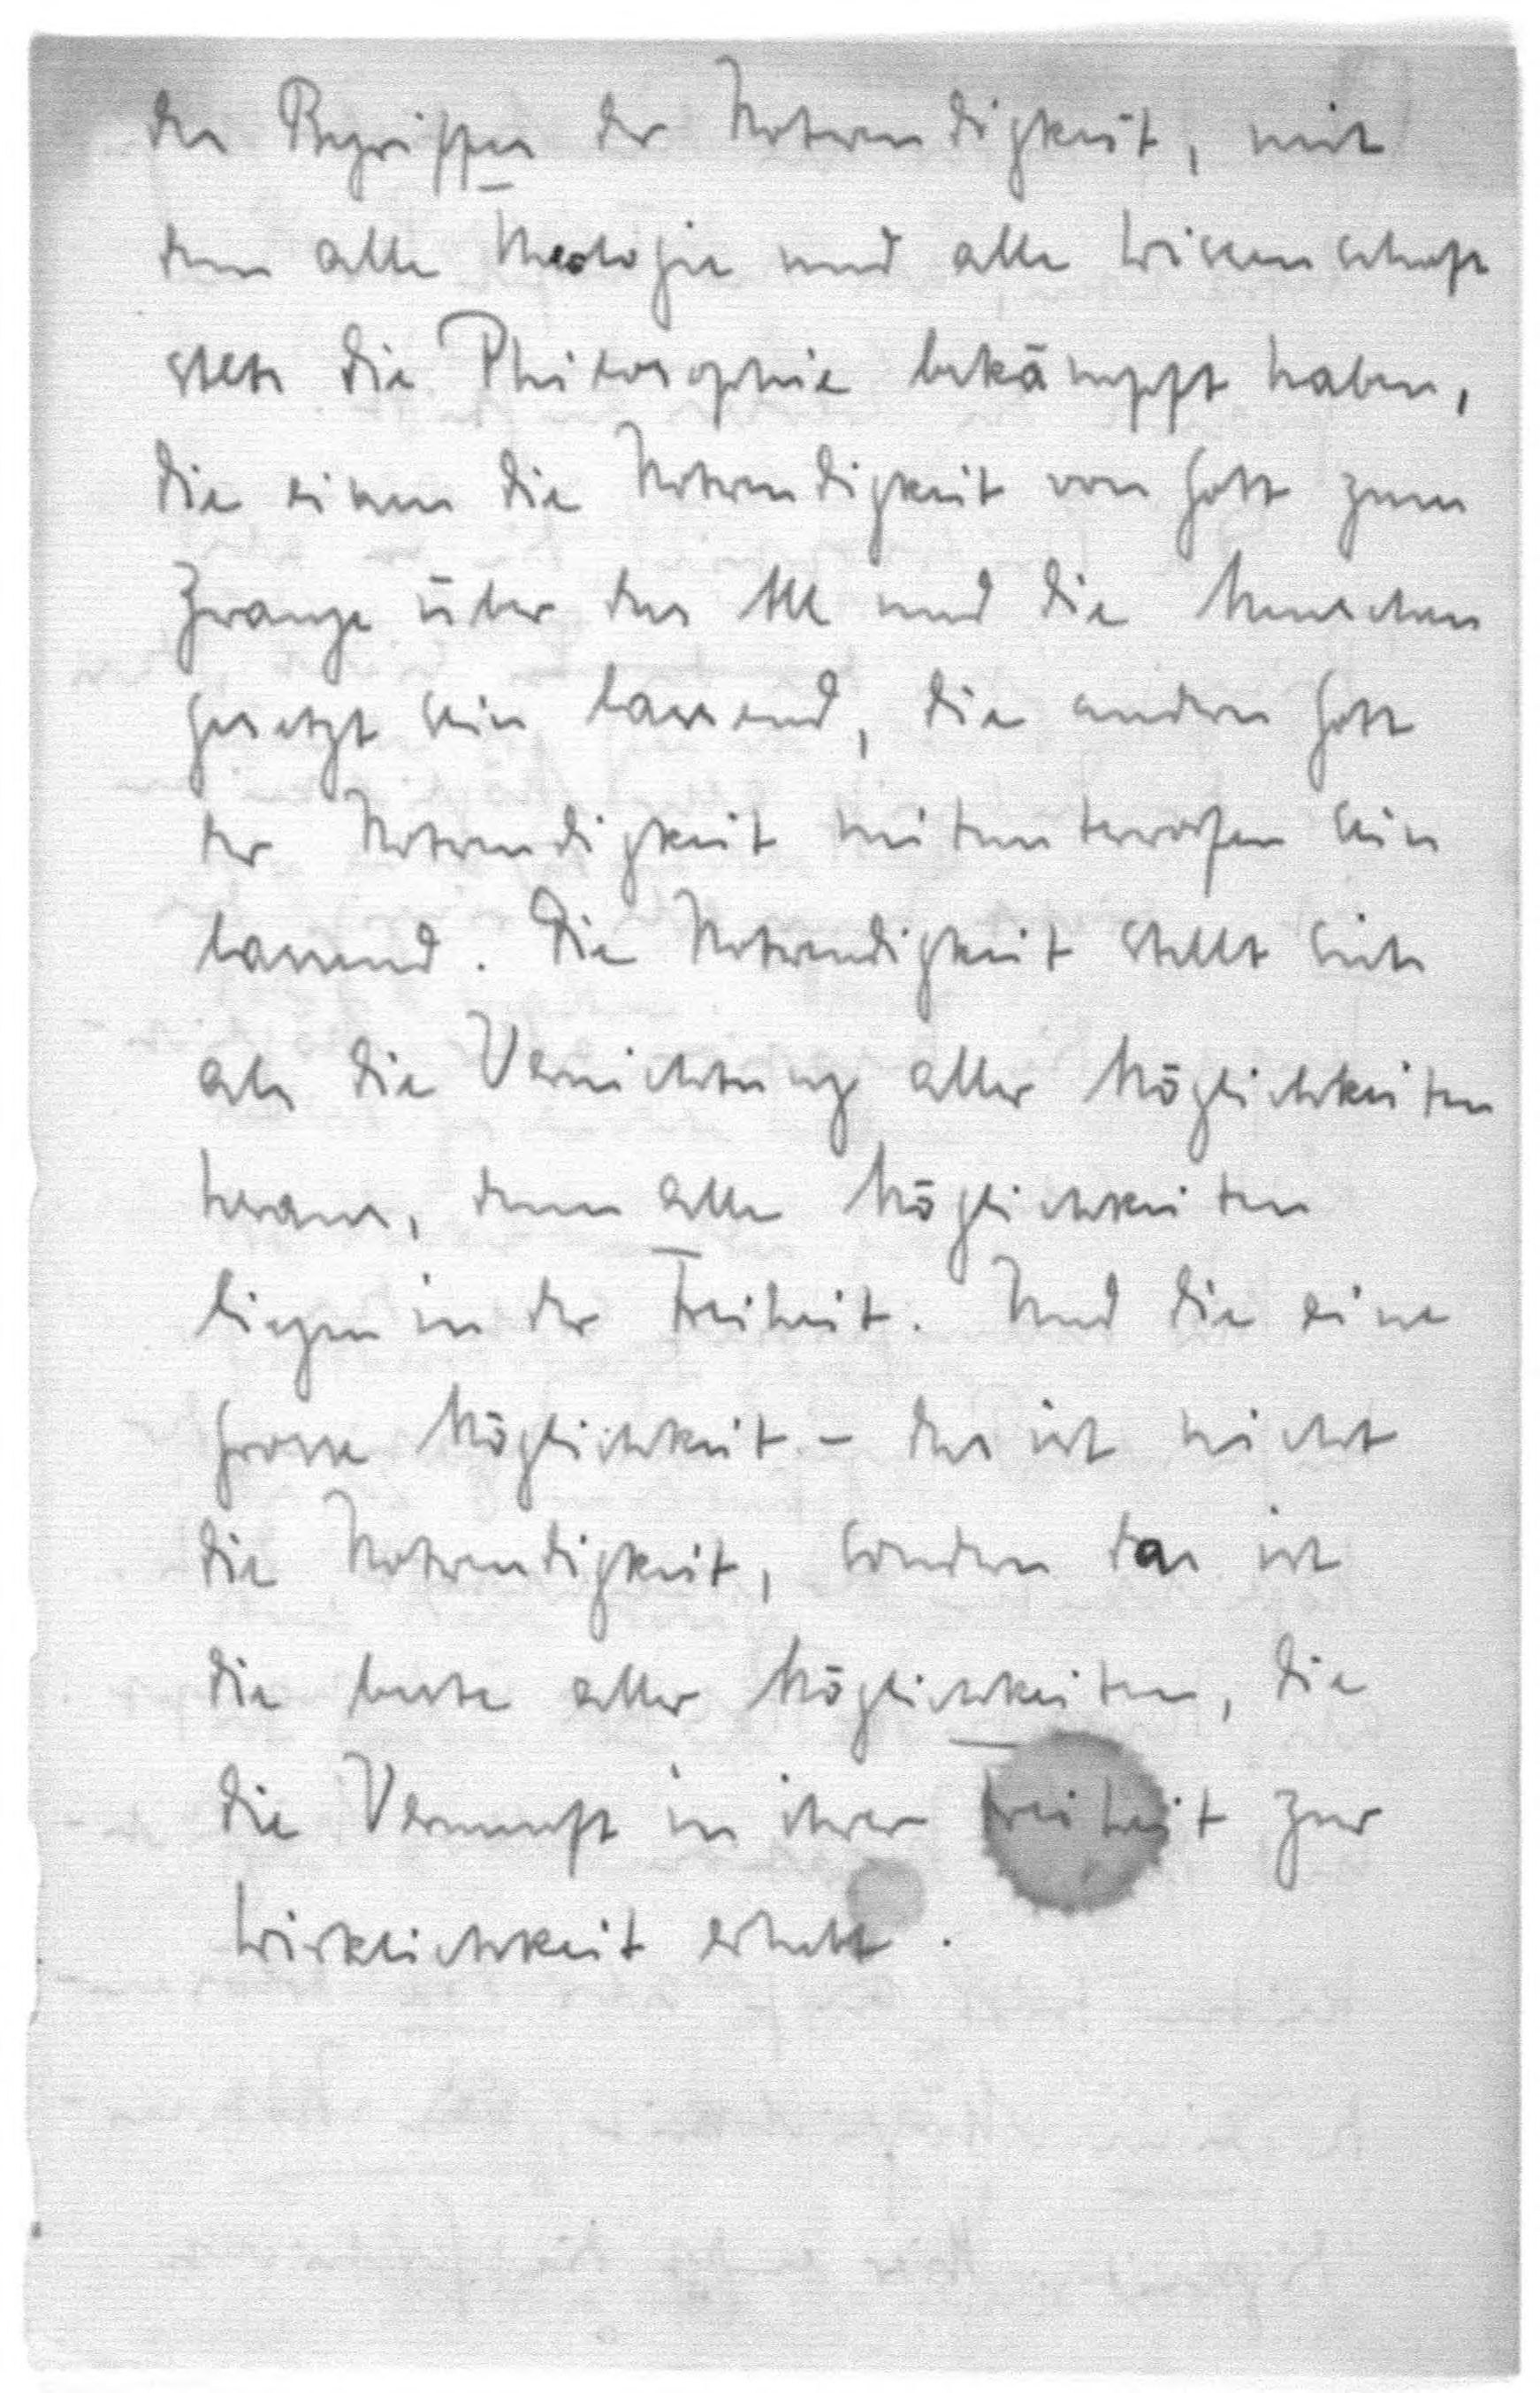 des Begriffes der Notwendigkeit, mit
dem alle Theologie und alle Wissenschaft
stets die Philosophie bekämpft haben,
die einen die Notwendigkeit von Gott zum
Zwange über das All und die Menschen
gesetzt sein lassend, die andern Gott
der Notwendigkeit mitunterworfen sein
lassend. Die Notwendigkeit stellt sich
als die Vernichtung aller Möglichkeiten
heraus, denn alle Möglichkeiten
liegen in der Freiheit. Und die eine
grosse Möglichkeit – das ist nicht
die Notwendigkeit, sondern das ist
die beste aller Möglichkeiten, die
die Vernunft in ihrer Freiheit zur
Wirklichkeit erhebt.